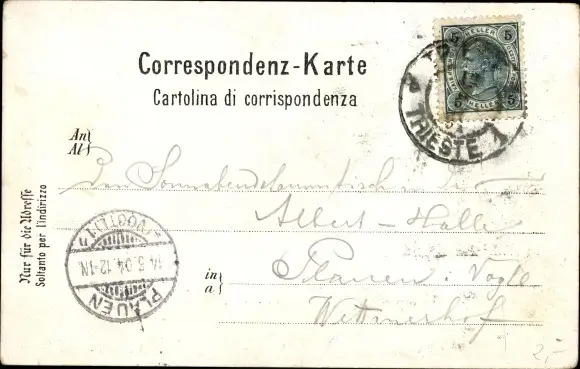 Correspondenz-Karte
Cartolina di corrispondenza
5 HELLER 5
5 HELLER 5
TRIESTE 1
An
Al
Den Sonnabendstammtisch
Albert-Halle
in
a
Plauen i. Vogtl
Wettinerhof
Nur für die Adresse
Soltanto per l'indirizzo
PLAUEN
14.5.04.12-1N.
(VOGTL) 1
2,-